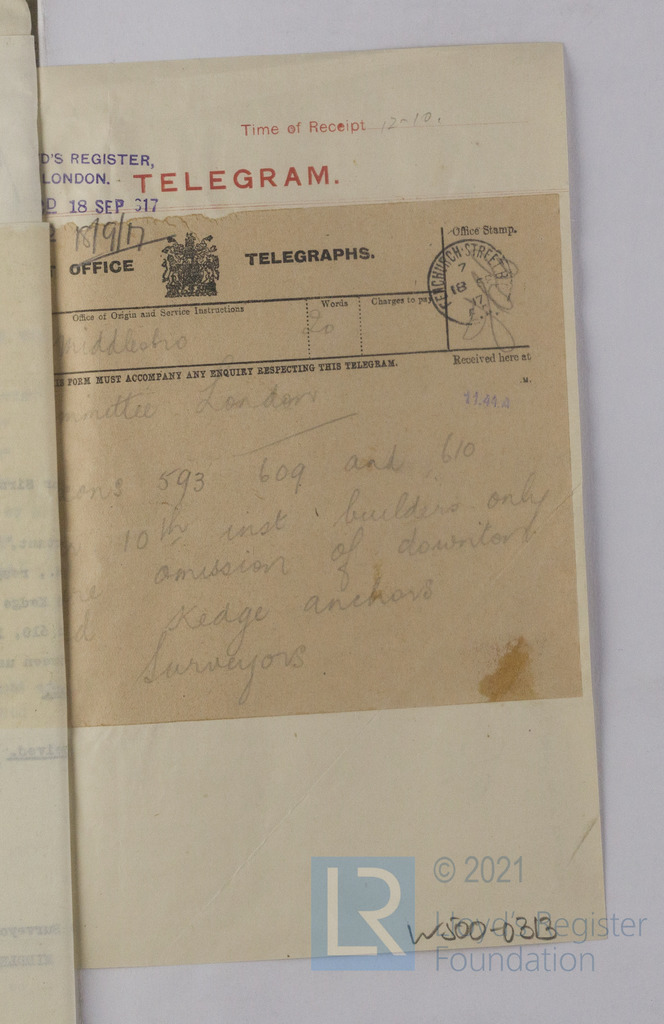 Time of Receipt 12-10.
D'S REGISTER,
LONDON.
TELEGRAM.
18 SEP 917
18/9/17
OFFICE
TELEGRAPHS.
Office Stamp.
FENCHURCH STREET
7
18
17
Office of Origin and Service Instructions
Words
Charges to pay
Middlesbro
20
Received here at
FORM MUST ACCOMPANY ANY ENQUIRY RESPECTING THIS TELEGRAM.
M.
11.44 A
mmittee London
593 609 and 610
10th inst builders only
omission of downton
Kedge anchors
Surveyors
LR
© 2021
Lloyd's Register
Foundation
W500-0313